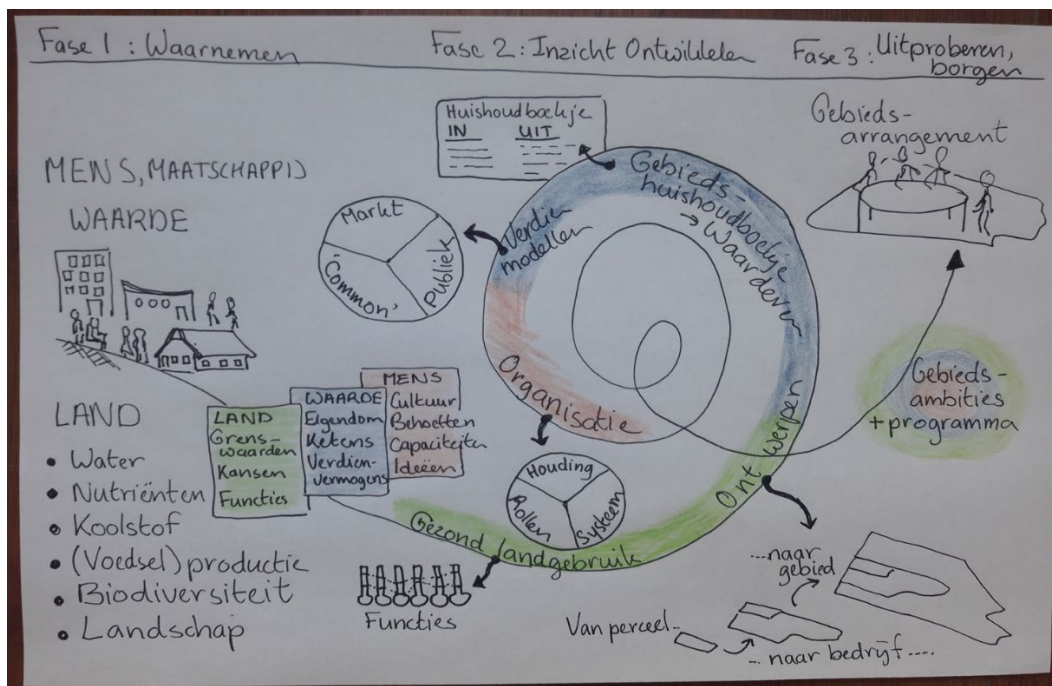 Fase 1 : Waarnemen
Fase 2 : Inzicht Ontwikkelen
Fase 3 : Uitproberen,
borgen
MENS, MAATSCHAPPIJ
WAARDE
LAND
• Water
• Nutriënten
• Koolstof
• (Voedsel) productie
• Biodiversiteit
• Landschap
LAND
Grens-
waarden
Kansen
Functies
WAARDE
Eigendom
Ketens
Verdien-
vermogens
MENS
Cultuur
Behoeften
Capaciteiten
Ideeën
Huishoudboekje
IN UIT
Markt
Publiek
'Common'
Verdien
modellen
Gebieds-
huishoudboekje
→ Waarderen
Organisatie
Houding
Rollen
Systeem
Gezond landgebruik
Functies
Ontwerpen
Van perceel..
... naar bedrijf ....
...naar
gebied
Gebieds-
arrangement
Gebieds-
ambities
+ programma